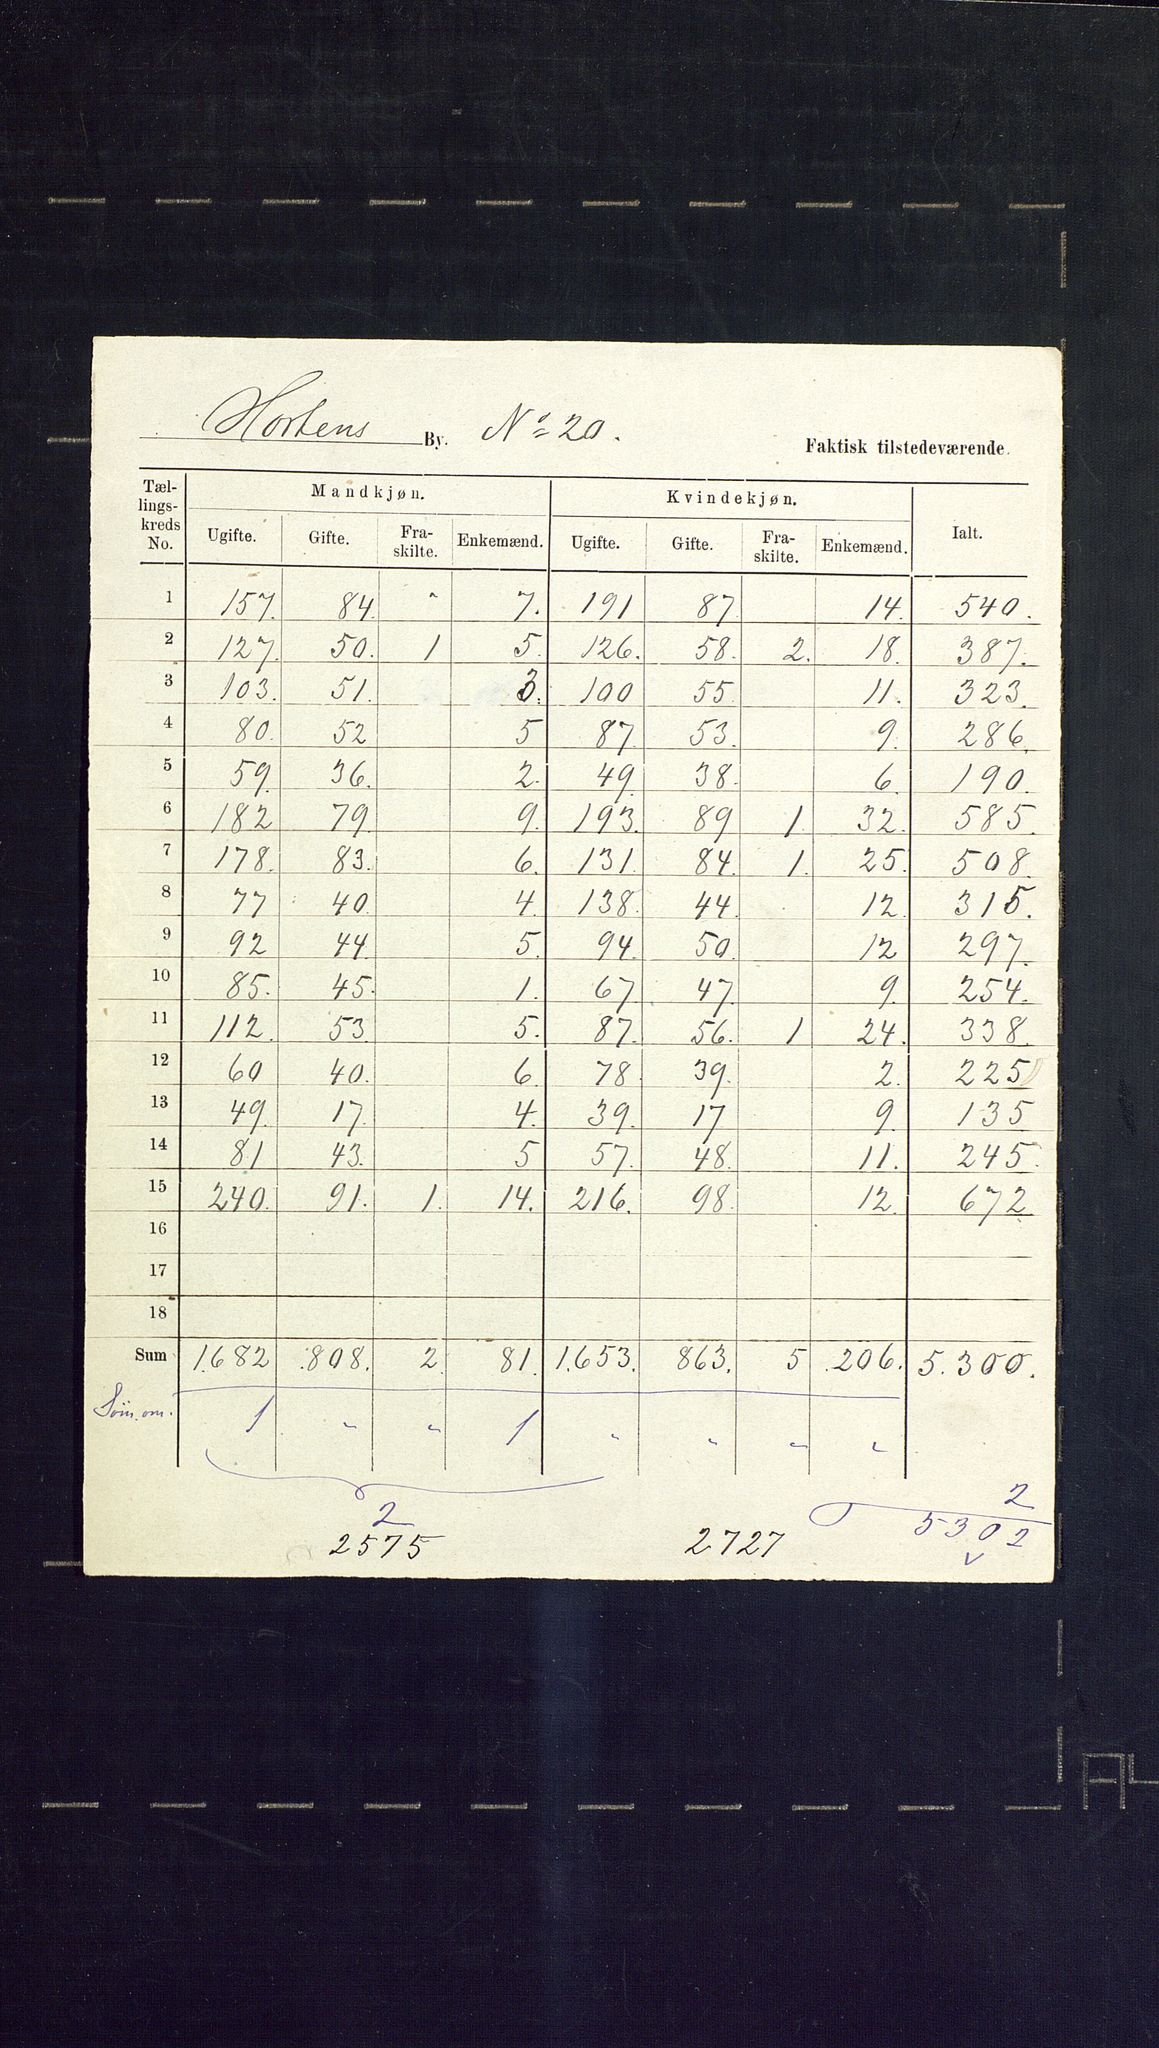 Hortens By. No 20. Faktisk tilstedeværende.
Tællingskreds No. Mandkjøn. Kvindekjøn. Ialt.
Ugifte. Gifte. Fraskilte. Enkemænd. Ugifte. Gifte. Fraskilte. Enkemænd.
1 157. 84 " 7. 191 87 14. 540.
2 127. 50. 1 5. 126. 58. 2. 18. 387.
3 103. 51. 3. 100 55 11. 323.
4 80. 52 5 87 53. 9. 286.
5 59. 36. 2. 49. 38. 6. 190.
6 182 79 9. 193. 89 1. 32. 585.
7 178. 83. 6. 131. 84. 1. 25. 508.
8 77 40 4. 138. 44. 12. 315.
9 92 44 5. 94. 50. 12 297.
10 85. 45. 1. 67 47 9. 254.
11 112. 53 5. 87. 56. 1 24. 338.
12 60 40. 6. 78 39. 2. 225
13 49. 17. 4. 39. 17 9. 135
14 81 43. 5 57. 48. 11. 245.
15 240. 91. 1. 14. 216. 98. 12. 672
16
17
18
Sum 1.682 808. 2. 81. 1.653. 863. 5 206. 5.300.
1 " " 1 " " " "
2 2
2575 2727 5302
A4